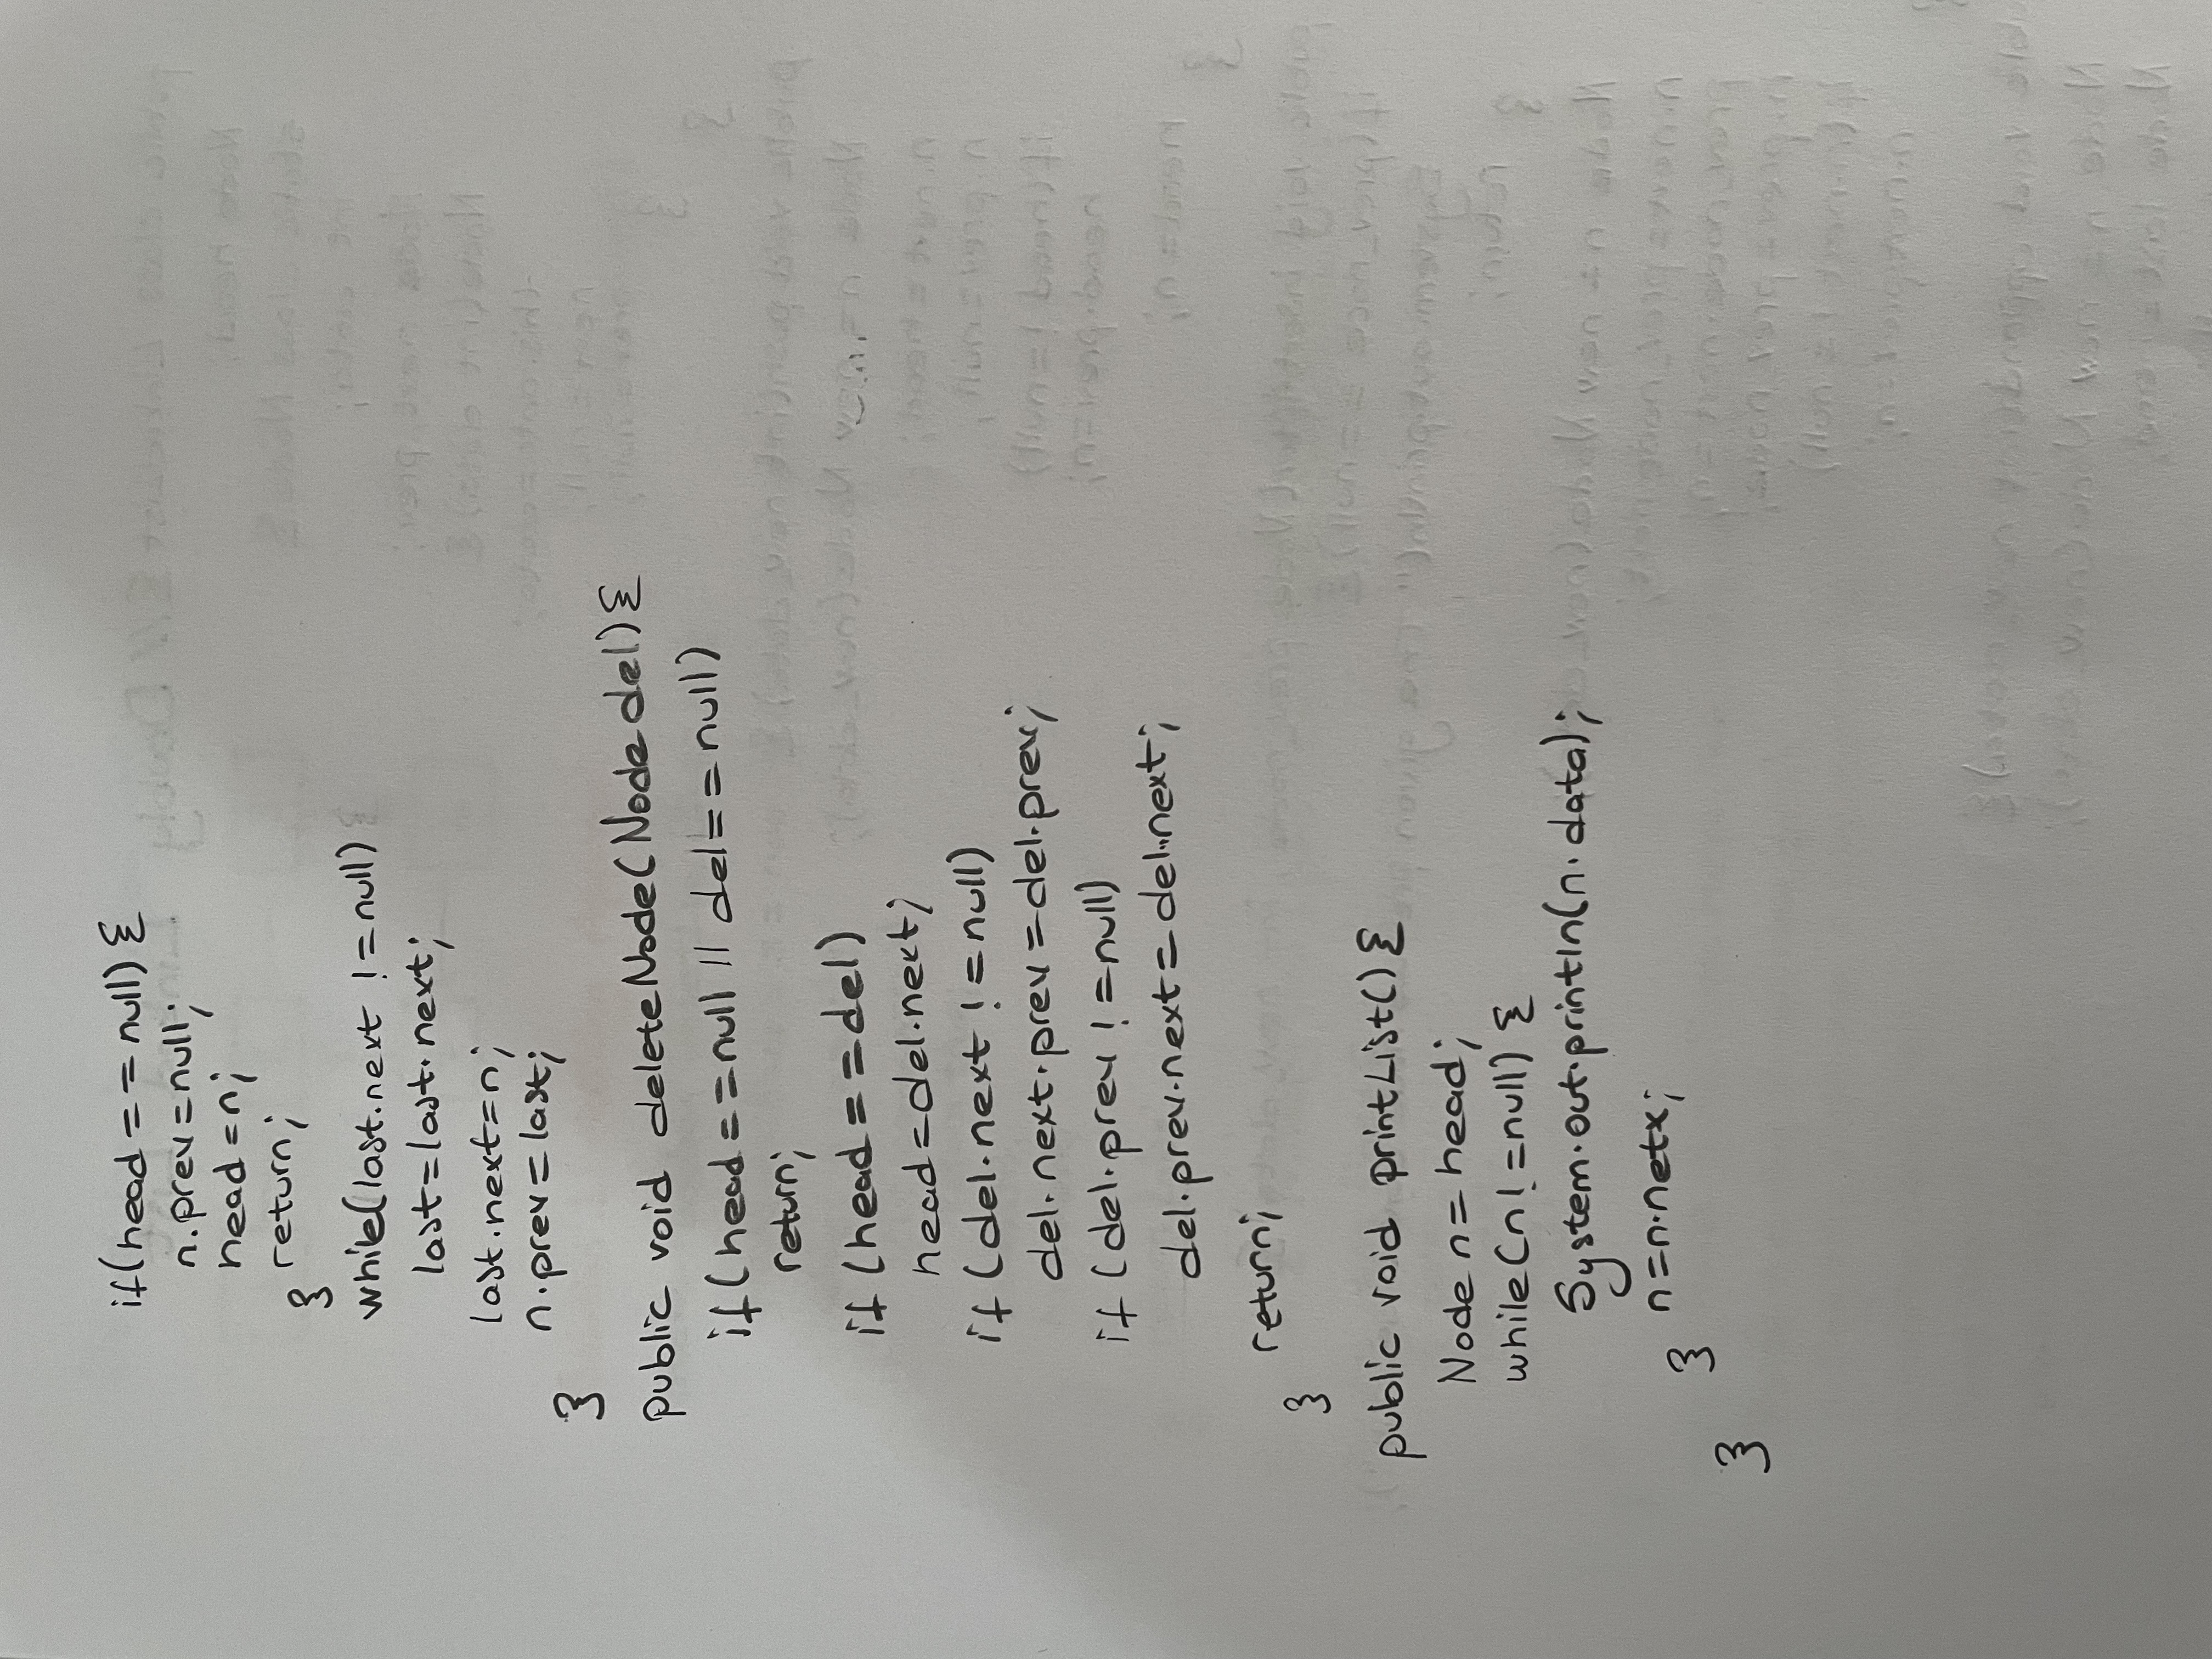 if(head == null) {
n.prev=null;
head=n;
return;
}
while(last.next != null)
last=last.next;
last.next=n;
n.prev=last;
}
public void deleteNode(Node del){
if(head==null || del==null)
return;
if (head==del)
head=del.next;
if (del.next != null)
del.next.prev=del.prev;
if (del.prev != null)
del.prev.next=del.next;
return;
}
public void printList(){
Node n= head;
while(n!=null) {
System.out.println(n.data);
n=n.netx;
}
}